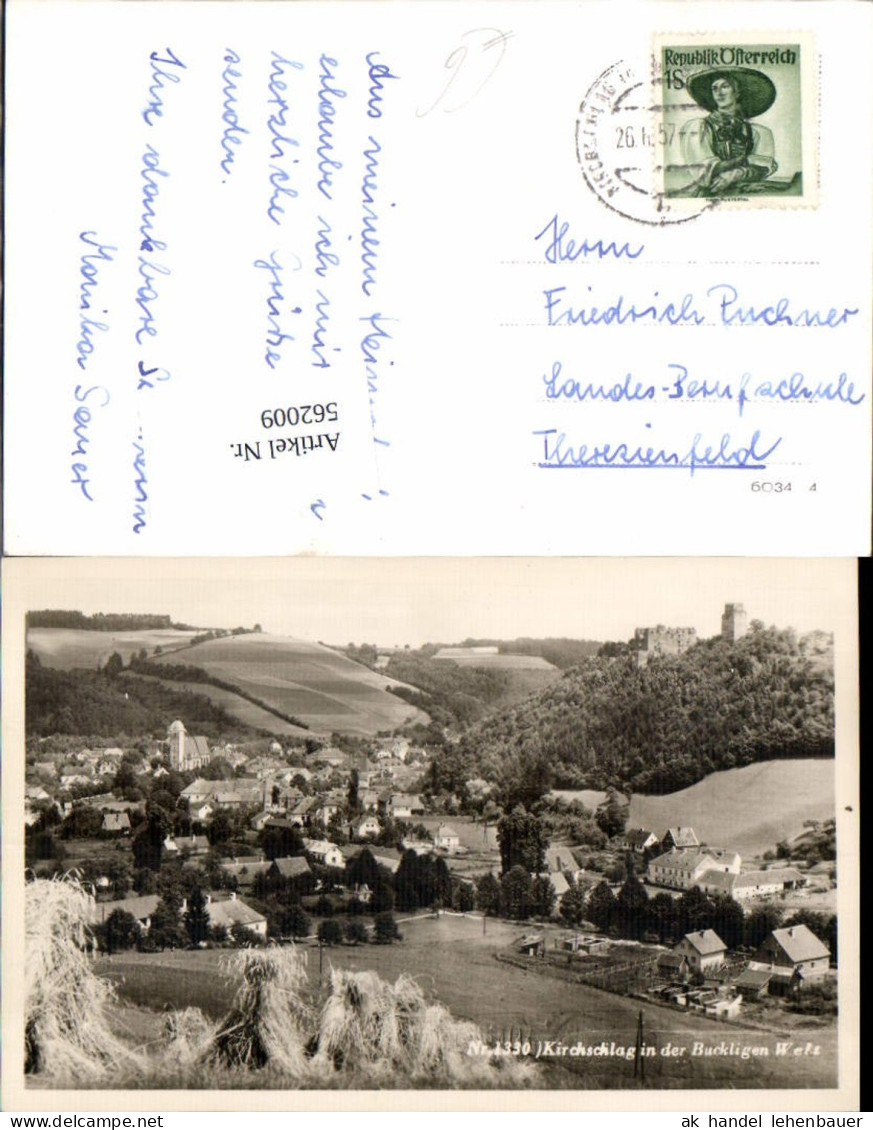 Aus meinem
erlaube ich mir
herzliche Grüße
senden.
Ihre dankbare
Monika
Artikel Nr.
562009
Republik Österreich
1S
26. 57
Herrn
Friedrich Puchner
Landes-Berufschule
Theresienfeld
6034 4
Nr. 1330) Kirchschlag in der Buckligen Welt
ak handel lehenbauer